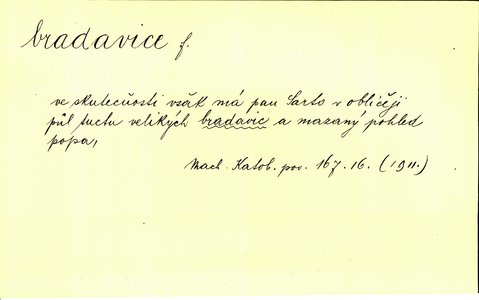 bradavice f.
ve skutečnosti však má pan Sarto v obličeji
půl tuctu velikých bradavic a mazaný pohled
popa,
Mach. Katol. pov. 167.16. (1911.)